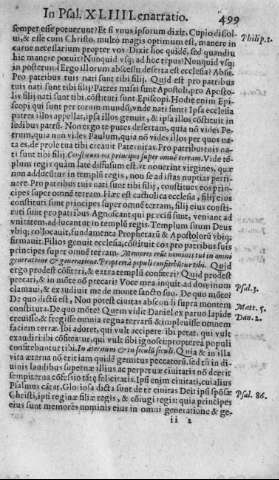 In Psal. XLIIII. enarratio. 499
semper esse potuerunt? Et si vnus ipsorum dixit, Cupio dissol- Philip. 1.
ui, & esse cum Christo, multo magis optimum est, manere in
carne necessarium propter vos. Dixit hoc quidē, sed quandiu
hic manere potuit? Nunquid vsq; ad hoc tempus? Nunquid vsq;
in posterum? Ergo illorum abscessu deserta est ecclesia? Absit.
Pro patribus tuis nati sunt tibi filij. Quid est pro patribus tuis
nati sunt tibi filij? Patres missi sunt Apostoli, pro Aposto-
lis filij nati sunt tibi, constituti sunt Episcopi. Hodie enim Epi-
scopi qui sunt per totum mundū, vnde nati sunt? Ipsa ecclesia
patres illos appellat, ipsa illos genuit, & ipsa illos cōstituit in
sedibus patrū. Non ergo te putes desertam, quia nō vides Pe-
trum, quia non vides Paulum, quia nō vides illos per quos na-
ta es, de prole tua tibi creauit Paternitas. Pro patribus tuis na-
ti sunt tibi filij. Constitues eos principes super omnē terram. Vide tē-
plum regis quàm late diffusum est, vt nouerint virgines, quæ
non adducūtur in templū regis, non se ad istas nuptias perti-
nere. Pro patribus tuis nati sunt tibi filij, constitues eos prin-
cipes super omnē terram. Hæc est catholica ecclesia, filij eius
constituti sunt principes super omnē terram, filij eius consti-
tuti sunt pro patribus. Agnoscant qui præcisi sunt, veniant ad
vnitatem, adducantur in templū regis. Templum suum Deus
vbiq; collocauit, fundamenta Prophetarū & Apostolorū vbiq;
firmauit. Filios genuit ecclesia, cōstituit eos pro patribus suis
principes super omnē terram. Memores erūt nominis tui in omni
generatione & generatione. Propterea populi confitebūtur tibi. Quid
ergo prodest cōfiteri, & extra templū confiteri? Quid prodest
precari, & in mōte nō precari? Voce mea inquit ad dominum
clamaui, & exaudiuit me de monte sancto suo. De quo mōte? Psal. 3.
De quo dictū est, Non potest ciuitas abscōdi supra montem Matt. 5.
constituta. De quo mōte? Quem vidit Daniel ex paruo lapide Dan. 2.
creuisse, & fregisse omnia regna terrarū & impleuisse omnem
faciem terræ. Ibi adoret, qui vult recipere: ibi petat, qui vult
exaudiri: ibi confiteatur, qui vult sibi ignosci: propterea populi
confitebuntur tibi. In æternum & in seculū seculi. Quia & in illa
vita æterna nō erit iam quidē gemitus peccatorū, sed tñ in di-
uinis laudibus supernæ illius ac perpetuæ ciuitatis nō deerit
sempiterna cōfessio tātę felicitatis. Ipsi enim ciuitati, cui alius
Psalmus cātat, Gloriosa dicta sunt de te ciuitas Dei: ipsi spōsæ Psal. 86.
Christi, ipsi reginæ filiæ regis, & cōiugi regis: quia principes
eius sunt memores nominis eius in omni generatione & ge-
ii 2